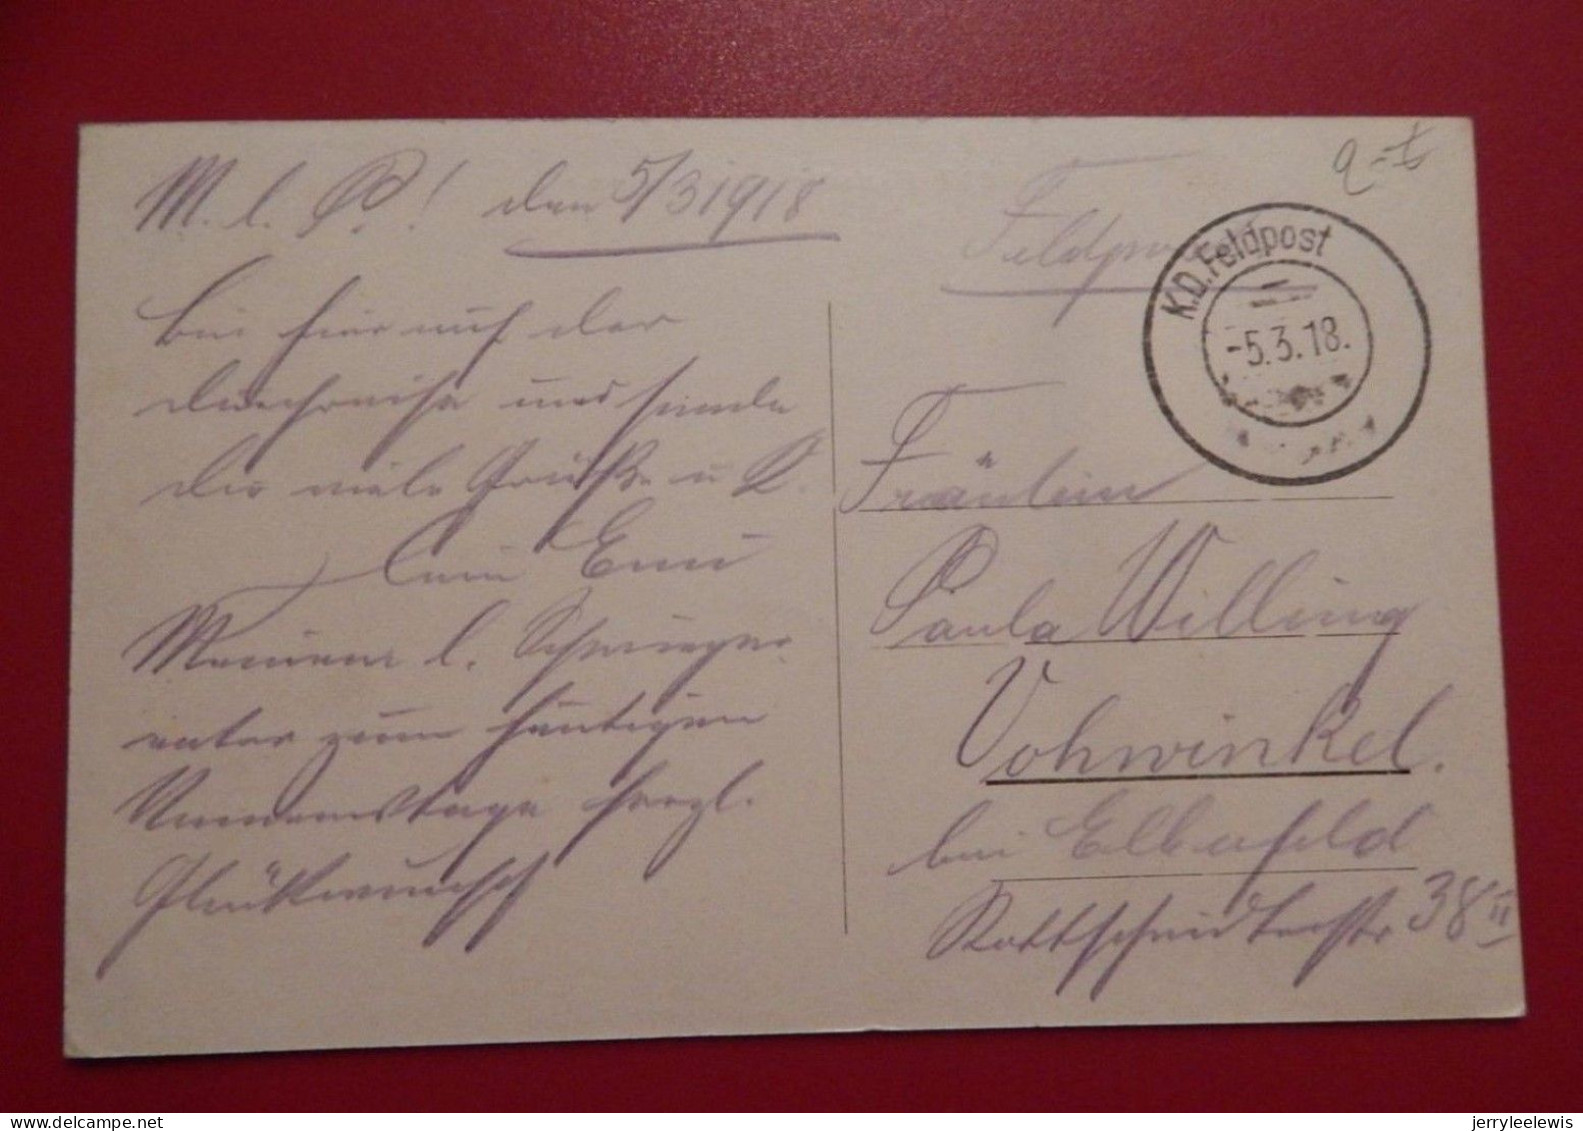 M. l. P.! den 5/3 1918
Bin hier auf der
Durchreise und sende
Dir viele Grüße u K.
Dein Emil
Meinem l. Schwieger-
vater zum heutigen
Namenstage herzl.
Glückwunsch
Feldpost
K.D. Feldpost
-5.3.18.
Fräulein
Paula Willing
Vohwinkel.
bei Elberfeld
Rottscheidterstr 38 II
www.delcampe.net
jerryleelewis